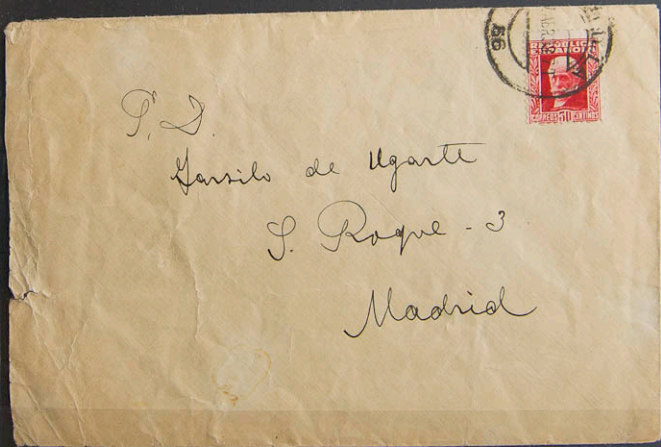 REPUBLICA
ESPAÑOLA
30 CENTIMOS
56
S. D.
Garsilo de Ugarte
S. Roque - 3
Madrid